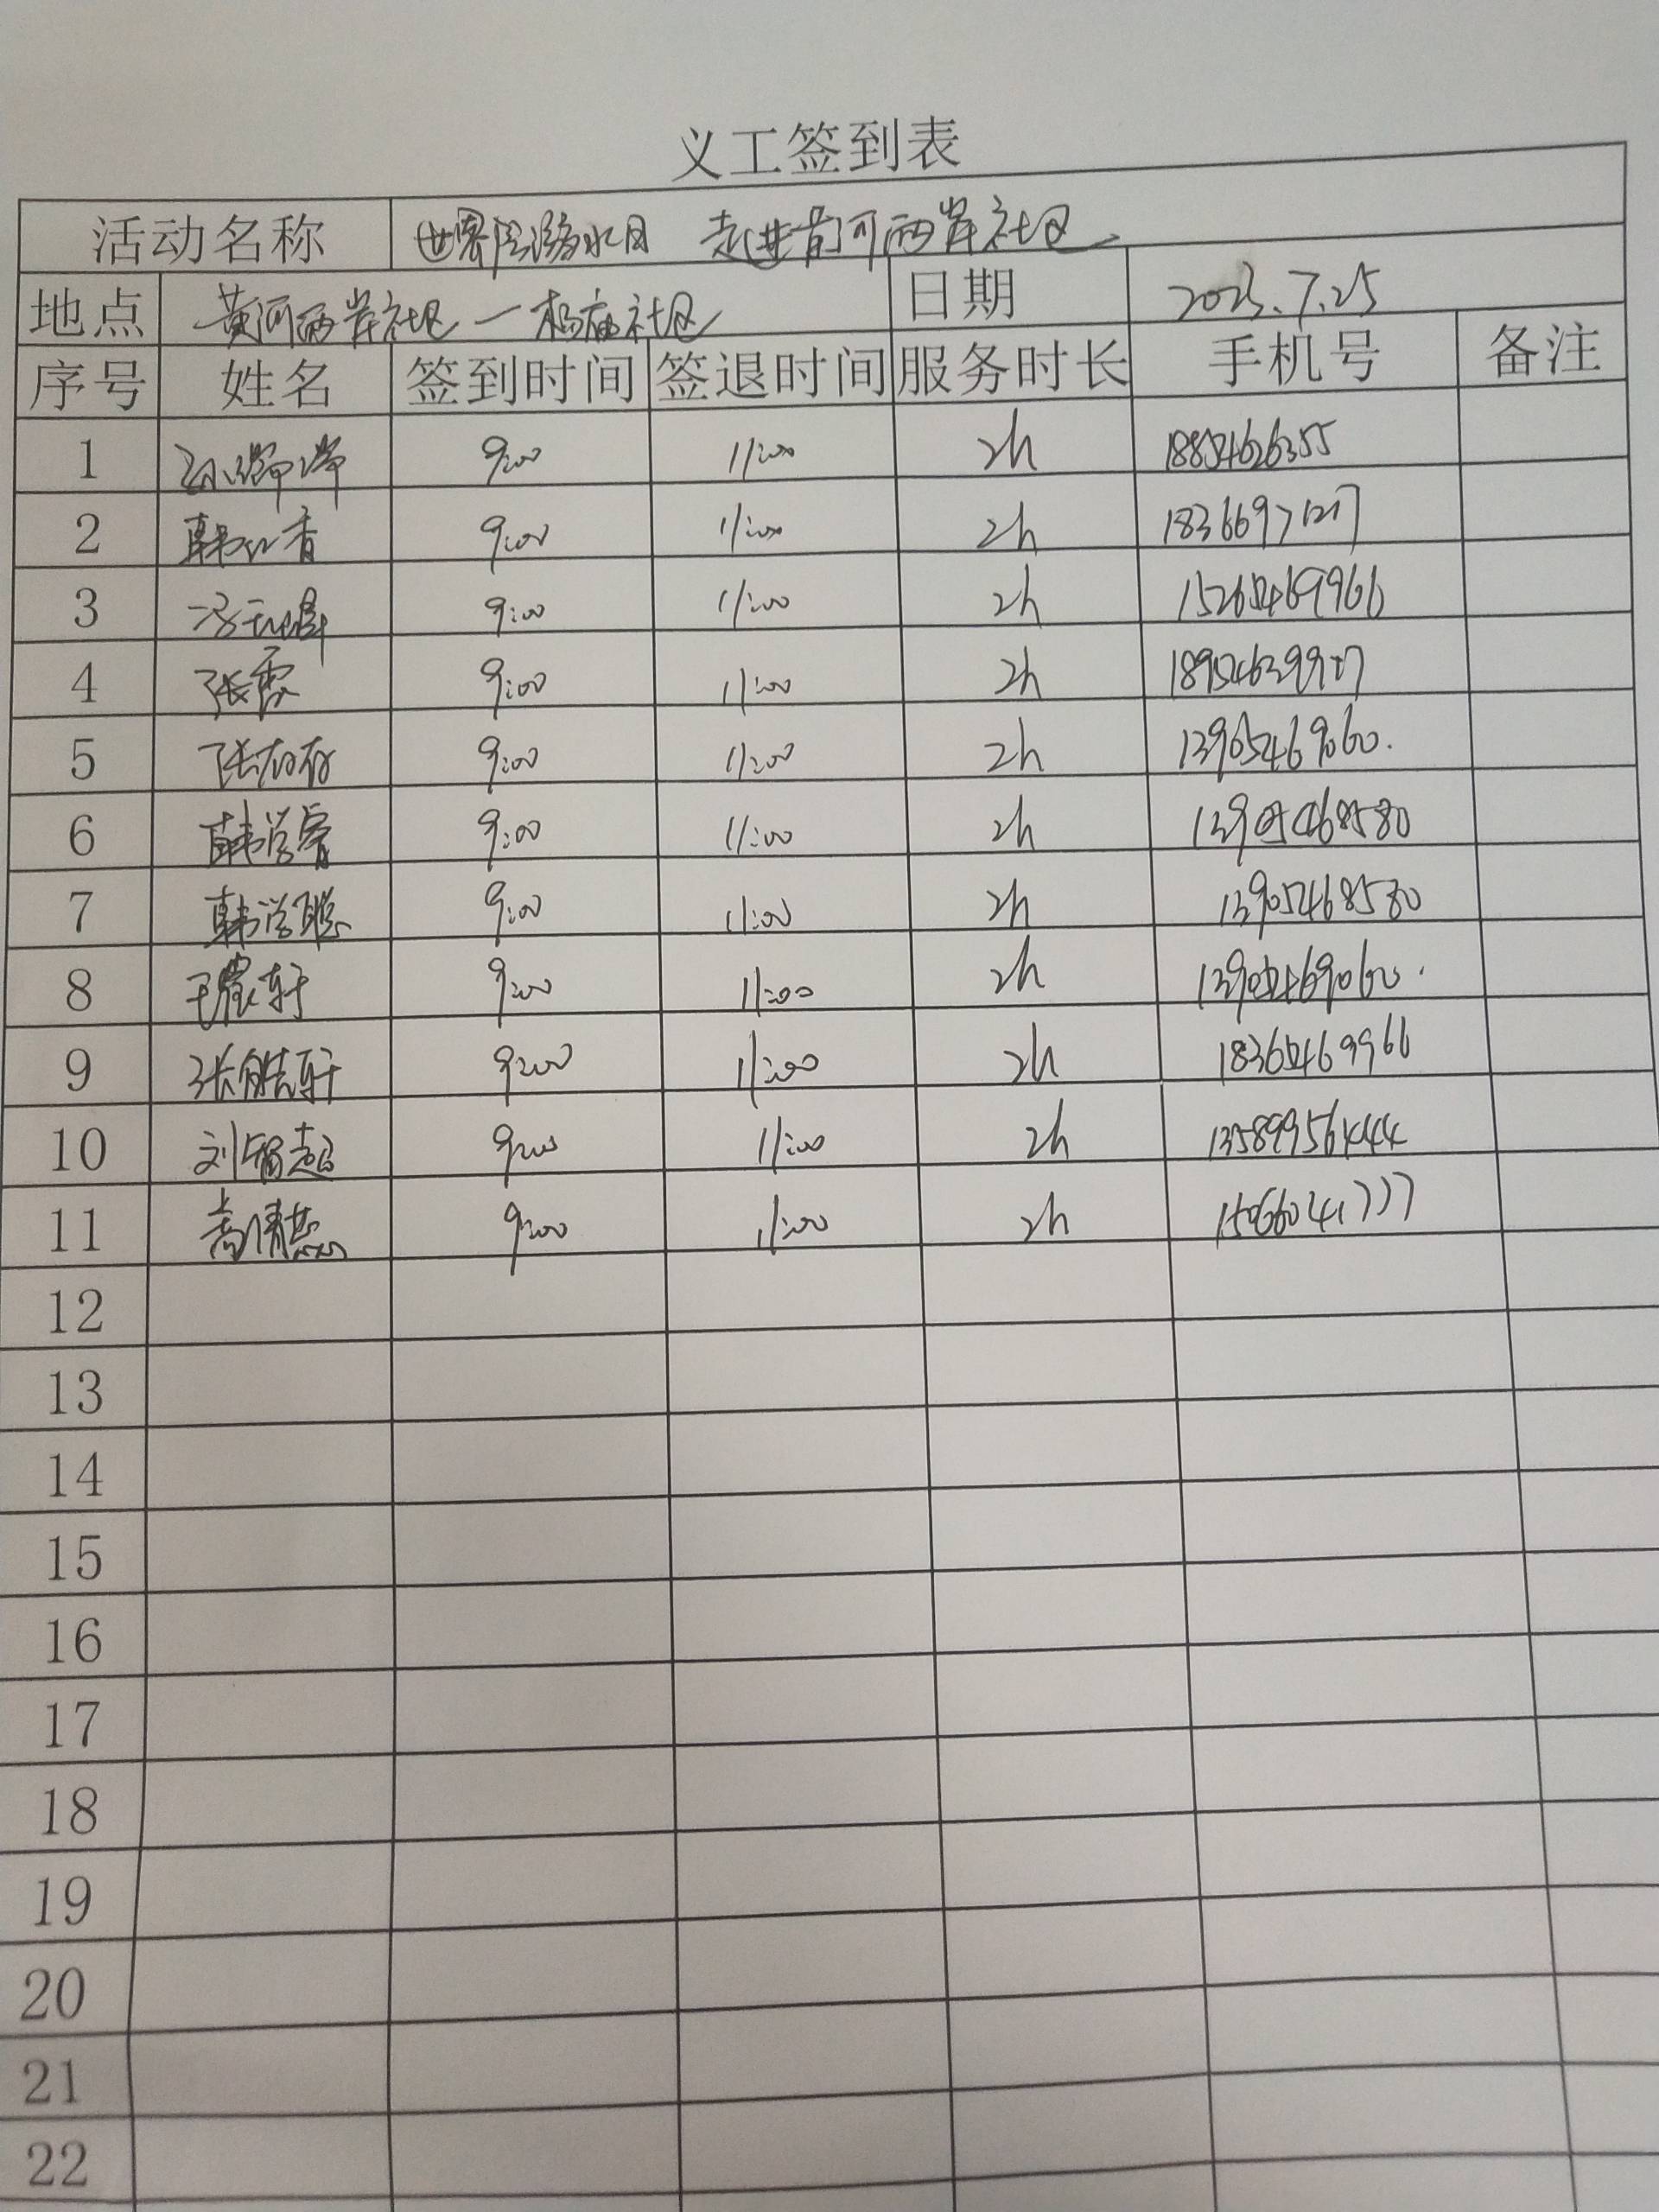 义工签到表
活动名称 世界防溺水日 走进黄河两岸社区
地点 黄河两岸社区—杨庙社区 日期 2023.7.25
序号 姓名 签到时间 签退时间 服务时长 手机号 备注
1 9:00 11:00 2h 18854626355
2 韩 香 9:00 11:00 2h
3 9:00 11:00 2h 15265469966
4 张霞 9:00 11:00 2h
5 张存存 9:00 11:00 2h 13905469060.
6 韩学睿 9:00 11:00 2h 13905468580
7 韩学聪 9:00 11:00 2h 13905468580
8 王晨轩 9:00 11:00 2h 13905469060.
9 张皓轩 9:00 11:00 2h 18365469966
10 刘锡超 9:00 11:00 2h
11 高倩燕 9:00 11:00 2h 15066041777
12
13
14
15
16
17
18
19
20
21
22